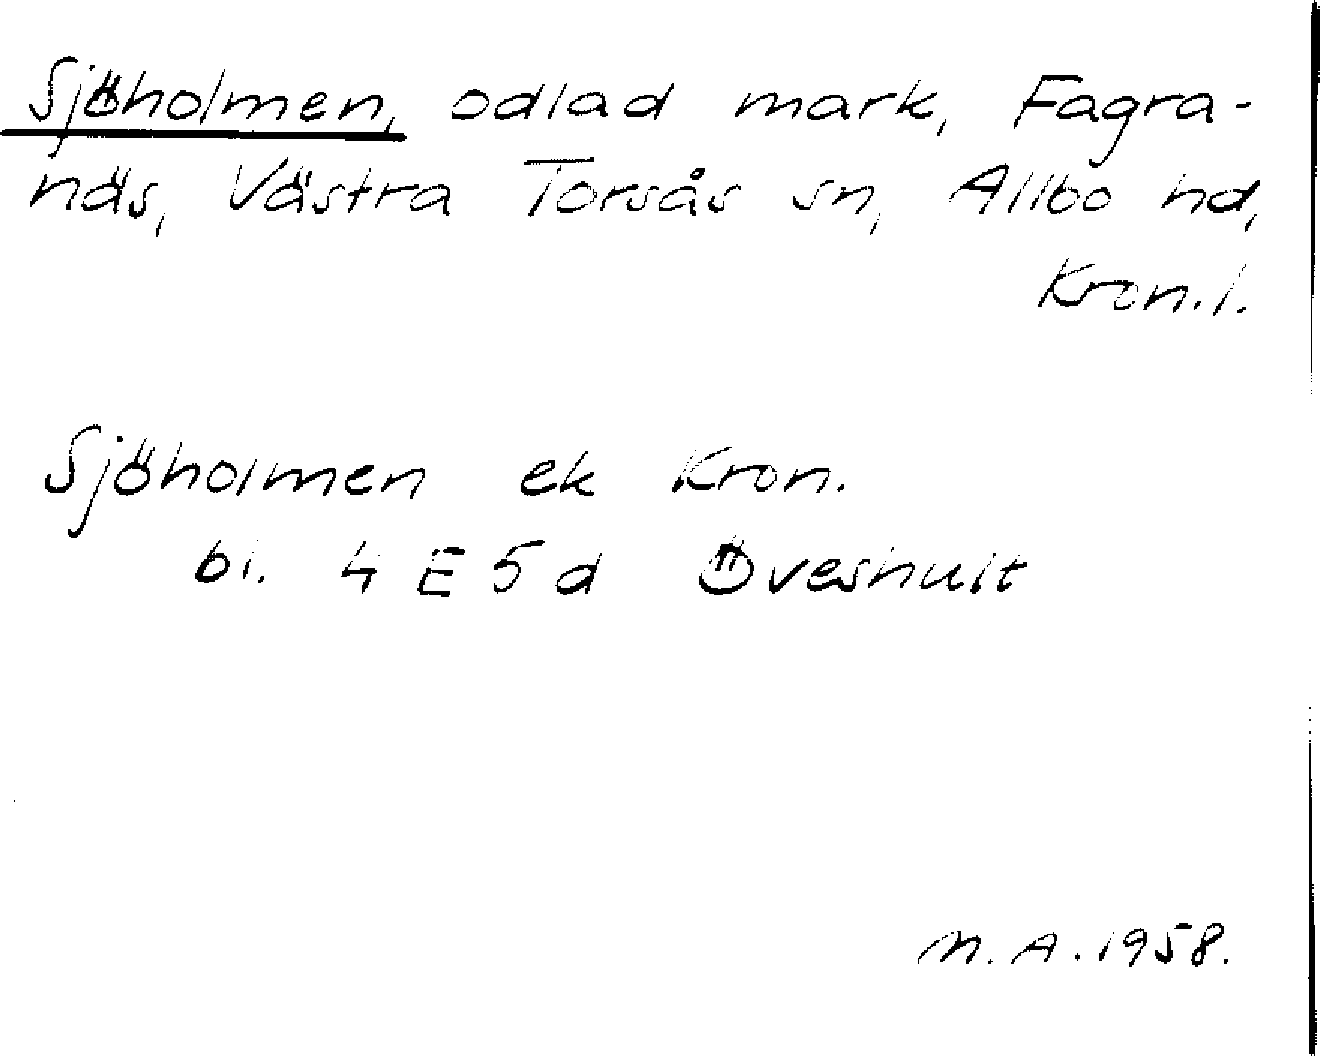 Sjöholmen, odlad mark, Fagra-
näs, Västra Torsås sn, Allbo hd,
Kron.l.
Sjöholmen ek Kron.
bl. 4 E 5 d Öveshult
M.A.1958.